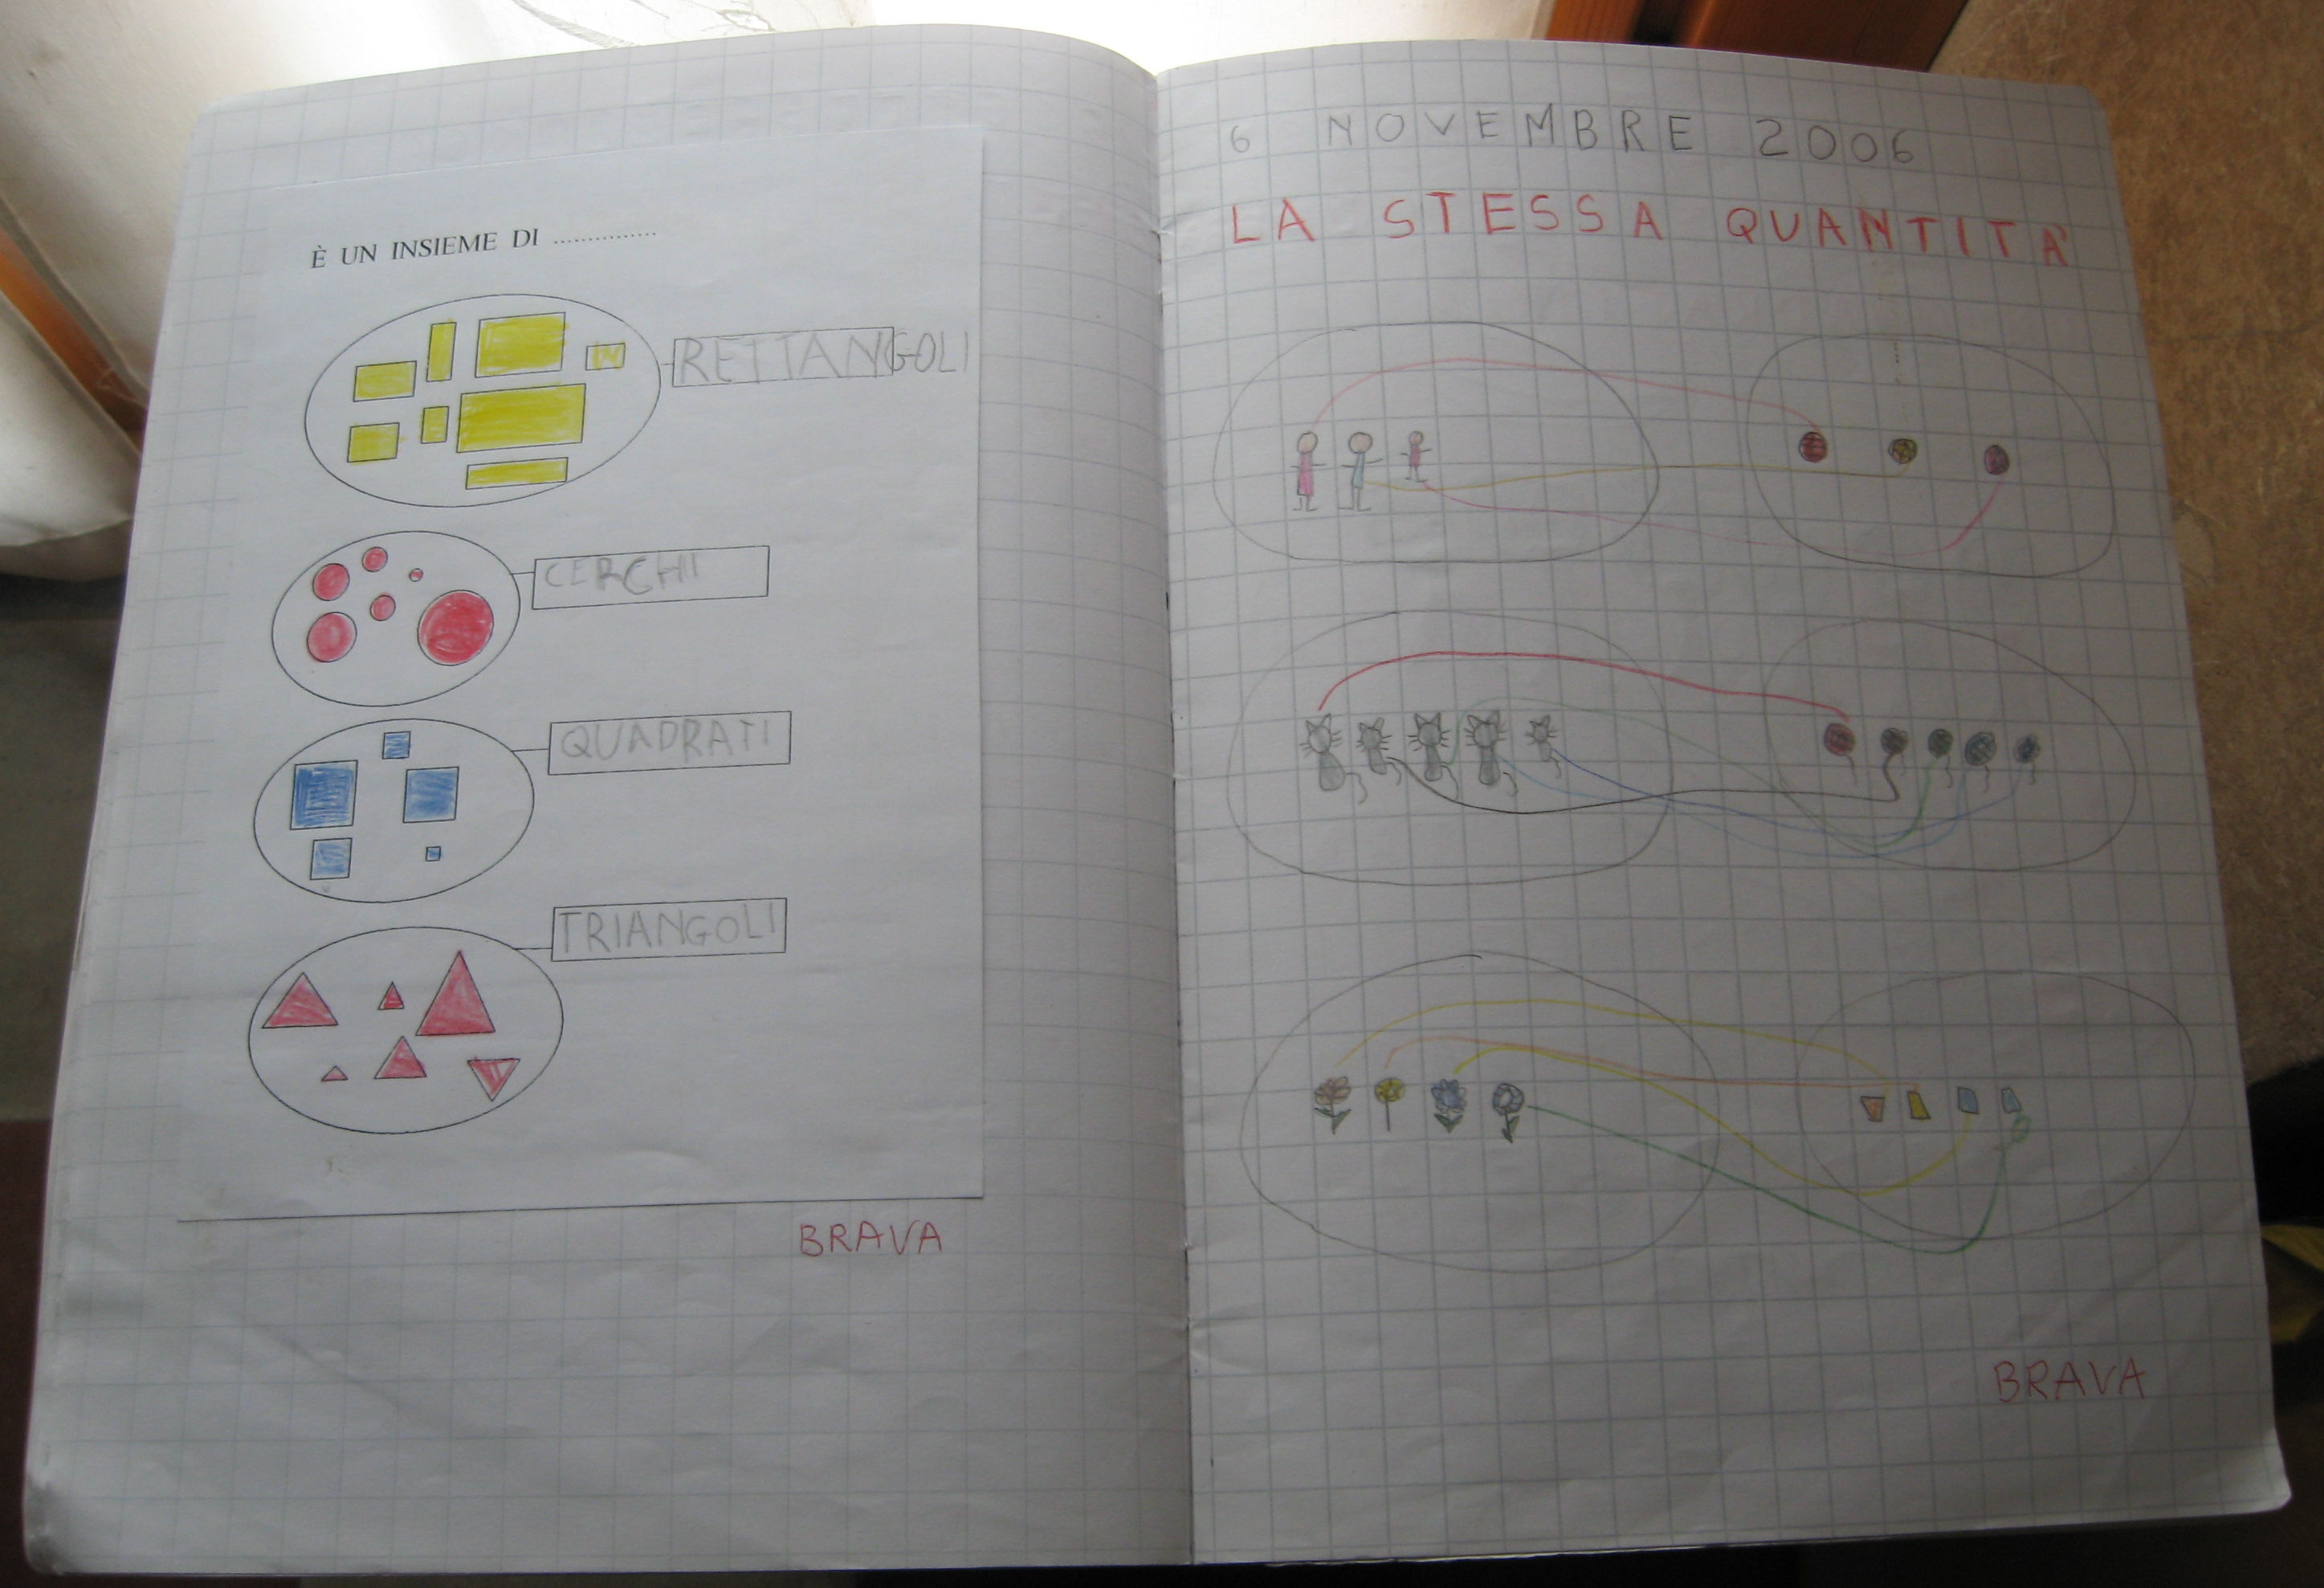 È UN INSIEME DI ...............
RETTANGOLI
CERCHI
QUADRATI
TRIANGOLI
BRAVA
6 NOVEMBRE 2006
LA STESSA QUANTITÀ
BRAVA